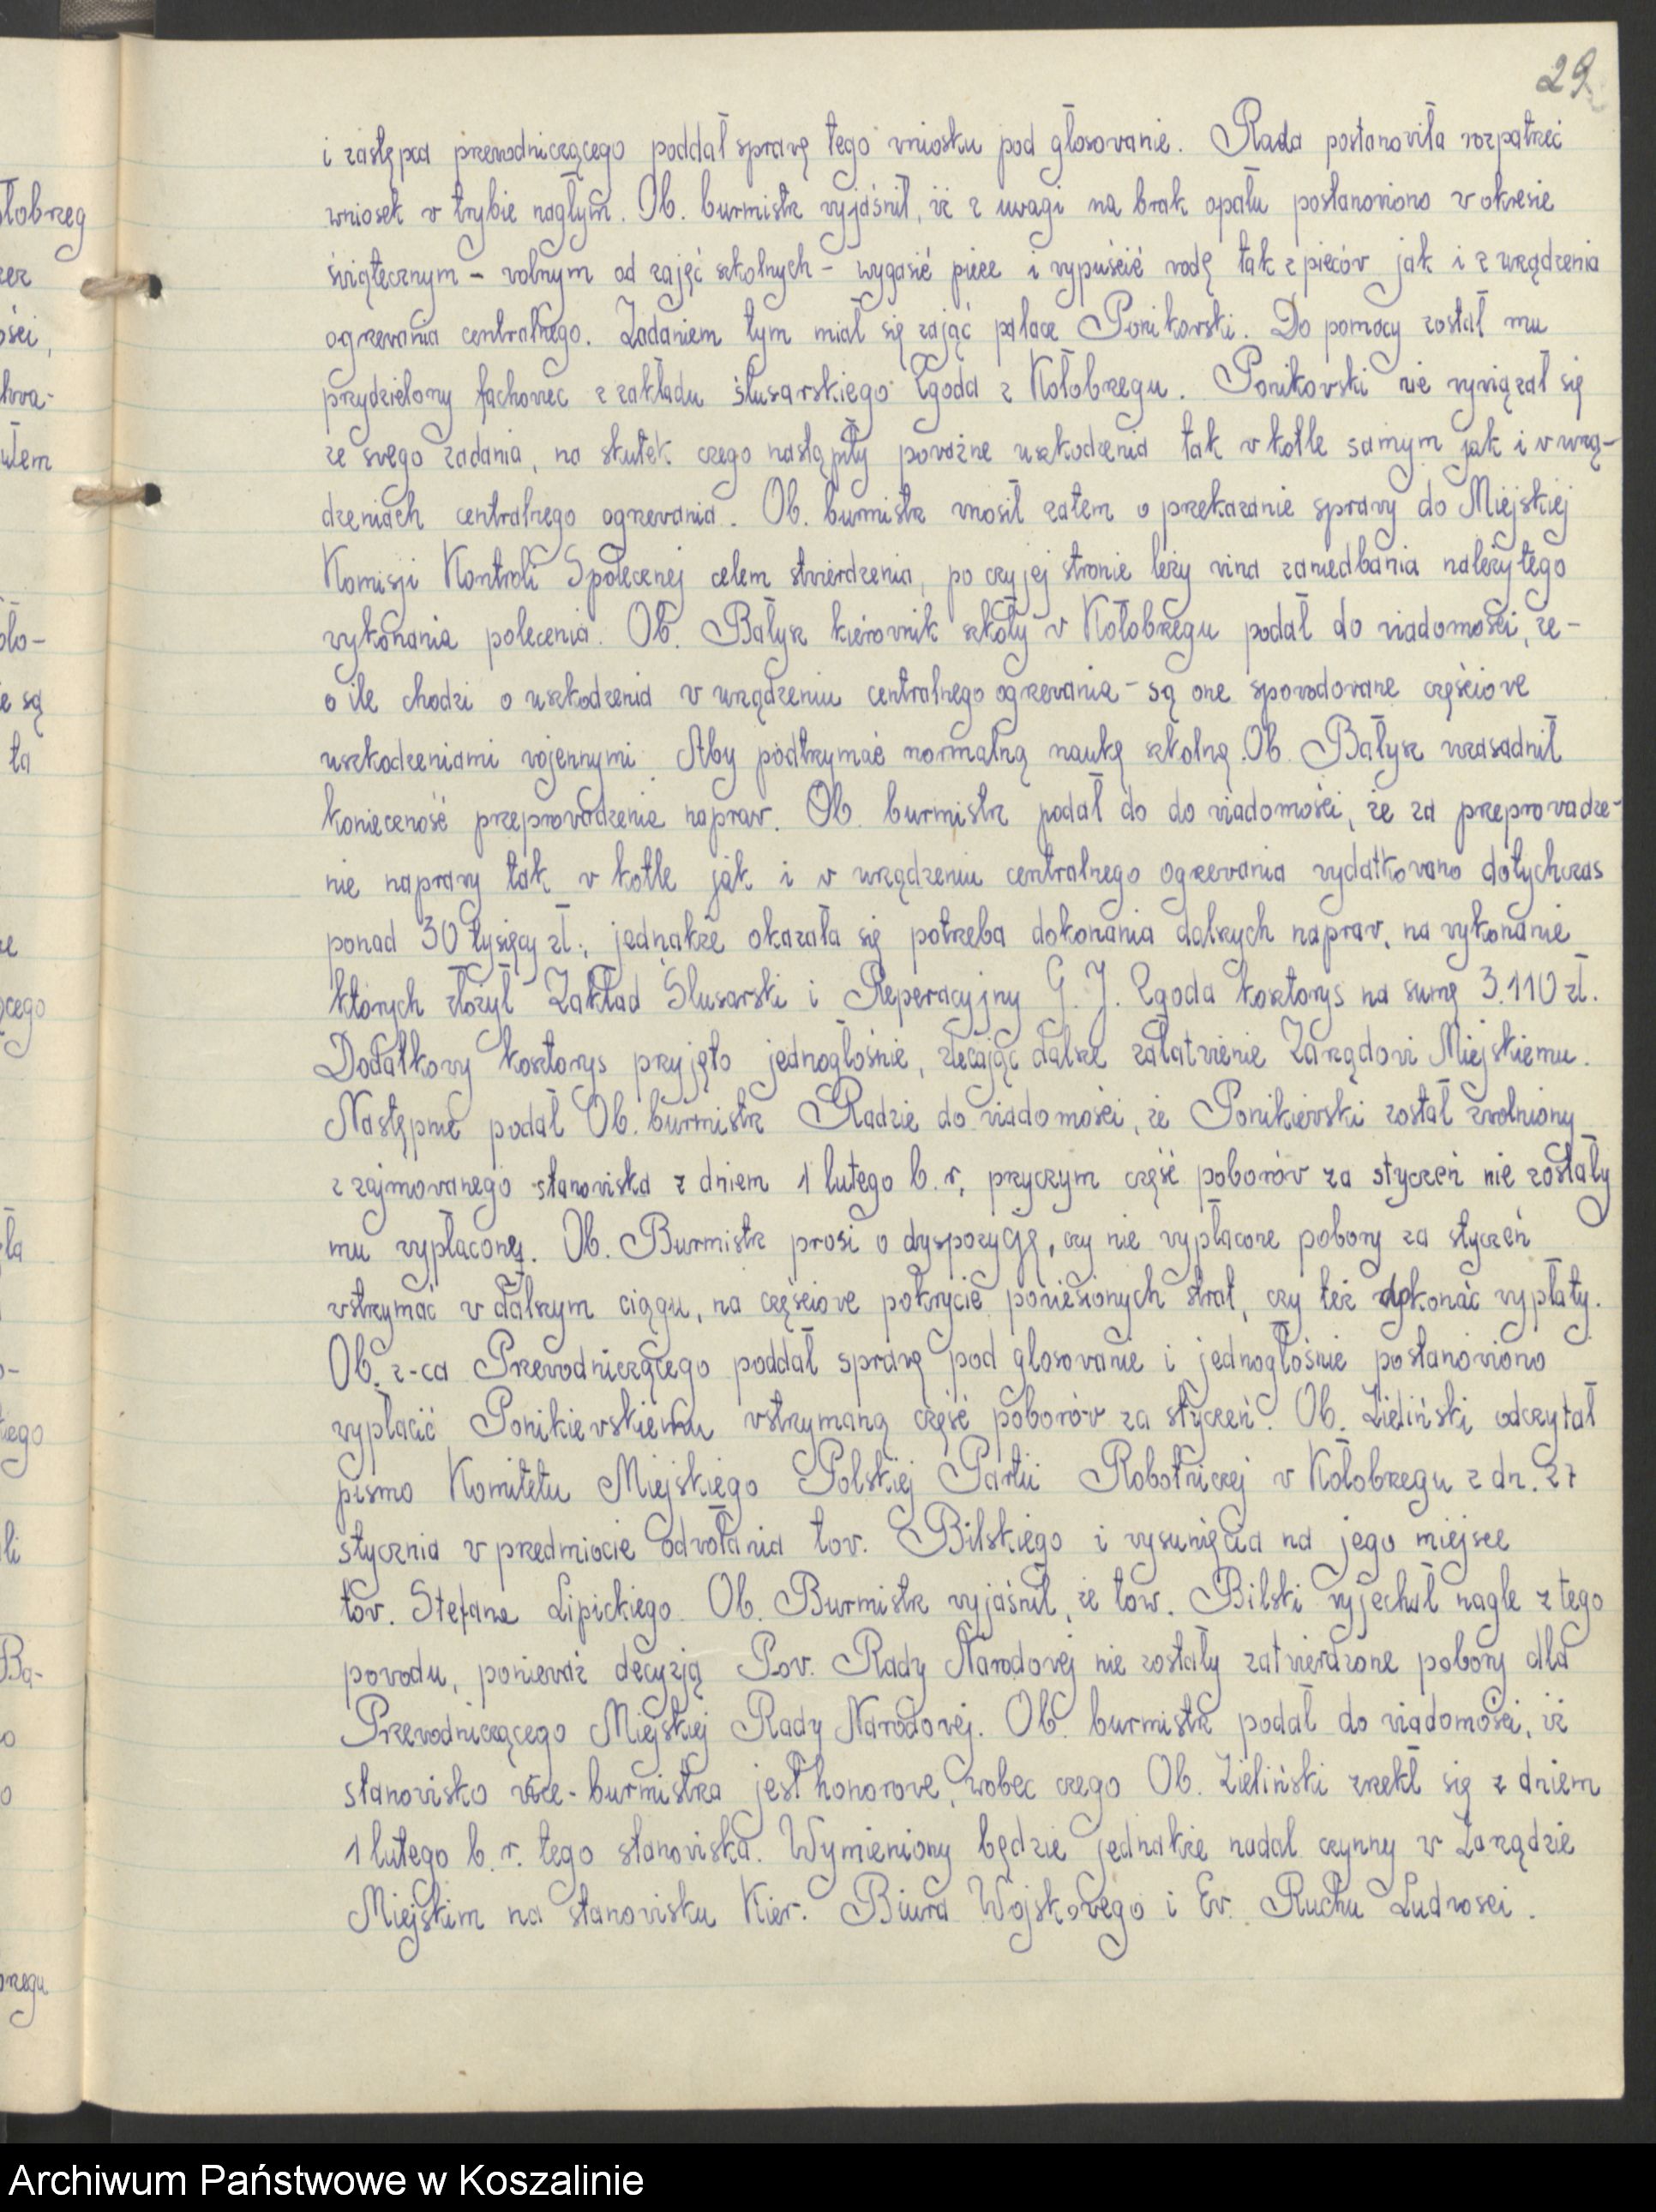 29
i zastępca przewodniczącego poddał sprawę tego wniosku pod głosowanie. Rada postanowiła rozpatrzeć
wniosek w trybie nagłym. Ob. burmistrz wyjaśnił, iż z uwagi na brak opału postanowiono w okresie
świątecznym – wolnym od zajęć szkolnych – wygasić piece i wypuścić wodę tak z pieców jak i z urządzenia
ogrzewania centralnego. Zadaniem tym miał się zająć palacz Ponikowski. Do pomocy został mu
przydzielony fachowiec z zakładu ślusarskiego Zgoda z Kołobrzegu. Ponikowski nie wywiązał się
ze swego zadania, na skutek czego nastąpiły poważne uszkodzenia tak w kotle samym jak i w urzą-
dzeniach centralnego ogrzewania. Ob. burmistrz wnosił zatem o przekazanie sprawy do Miejskiej
Komisji Kontroli Społecznej celem stwierdzenia, po czyjej stronie leży wina zaniedbania należytego
wykonania polecenia. Ob. Bałysz kierownik szkoły w Kołobrzegu podał do wiadomości, że –
o ile chodzi o uszkodzenia w urządzeniu centralnego ogrzewania – są one spowodowane częściowe
uszkodzeniami wojennymi. Aby podtrzymać normalną naukę szkolną. Ob. Bałysz uzasadnił
konieczność przeprowadzenia napraw. Ob. burmistrz podał do do wiadomości, że za przeprowadze-
nie naprawy tak w kotle jak i w urządzeniu centralnego ogrzewania wydatkowano dotychczas
ponad 30 tysięcy zł., jednakże okazała się potrzeba dokonania dalszych napraw, na wykonanie
których złożył Zakład Ślusarski i Reperacyjny G. J. Zgoda kosztorys na sumę 3.110 zł.
Dodatkowy kosztorys przyjęto jednogłośnie, zlecając dalsze załatwienie Zarządowi Miejskiemu.
Następnie podał Ob. burmistrz Radzie do wiadomości, że Ponikiewski został zwolniony
z zajmowanego stanowiska z dniem 1 lutego b. r., przyczym część poborów za styczeń nie zostały
mu wypłacone. Ob. Burmistrz prosi o dyspozycję, czy nie wypłacone pobory za styczeń
wstrzymać w dalszym ciągu, na częściowe pokrycie poniesionych strat, czy też dokonać wypłaty.
Ob. z-ca Przewodniczącego poddał sprawę pod głosowanie i jednogłośnie postanowiono
wypłacić Ponikiewskiemu wstrzymaną część poborów za styczeń. Ob. Zieliński odczytał
pismo Komitetu Miejskiego Polskiej Partii Robotniczej w Kołobrzegu z dn. 27
stycznia w przedmiocie odwołania tow. Bilskiego i wysunięcia na jego miejsce
tow. Stefana Lipickiego. Ob. Burmistrz wyjaśnił, że tow. Bilski wyjechał nagle z tego
powodu, ponieważ decyzją Pow. Rady Narodowej nie zostały zatwierdzone pobory dla
Przewodniczącego Miejskiej Rady Narodowej. Ob. burmistrz podał do wiadomości, iż
stanowisko vice-burmistrza jest honorowe, wobec czego Ob. Zieliński zrzekł się z dniem
1 lutego b. r. tego stanowiska. Wymieniony będzie jednakże nadal czynny w Zarządzie
Miejskim na stanowisku Kier. Biura Wojskowego i Ew. Ruchu Ludności.
Archiwum Państwowe w Koszalinie